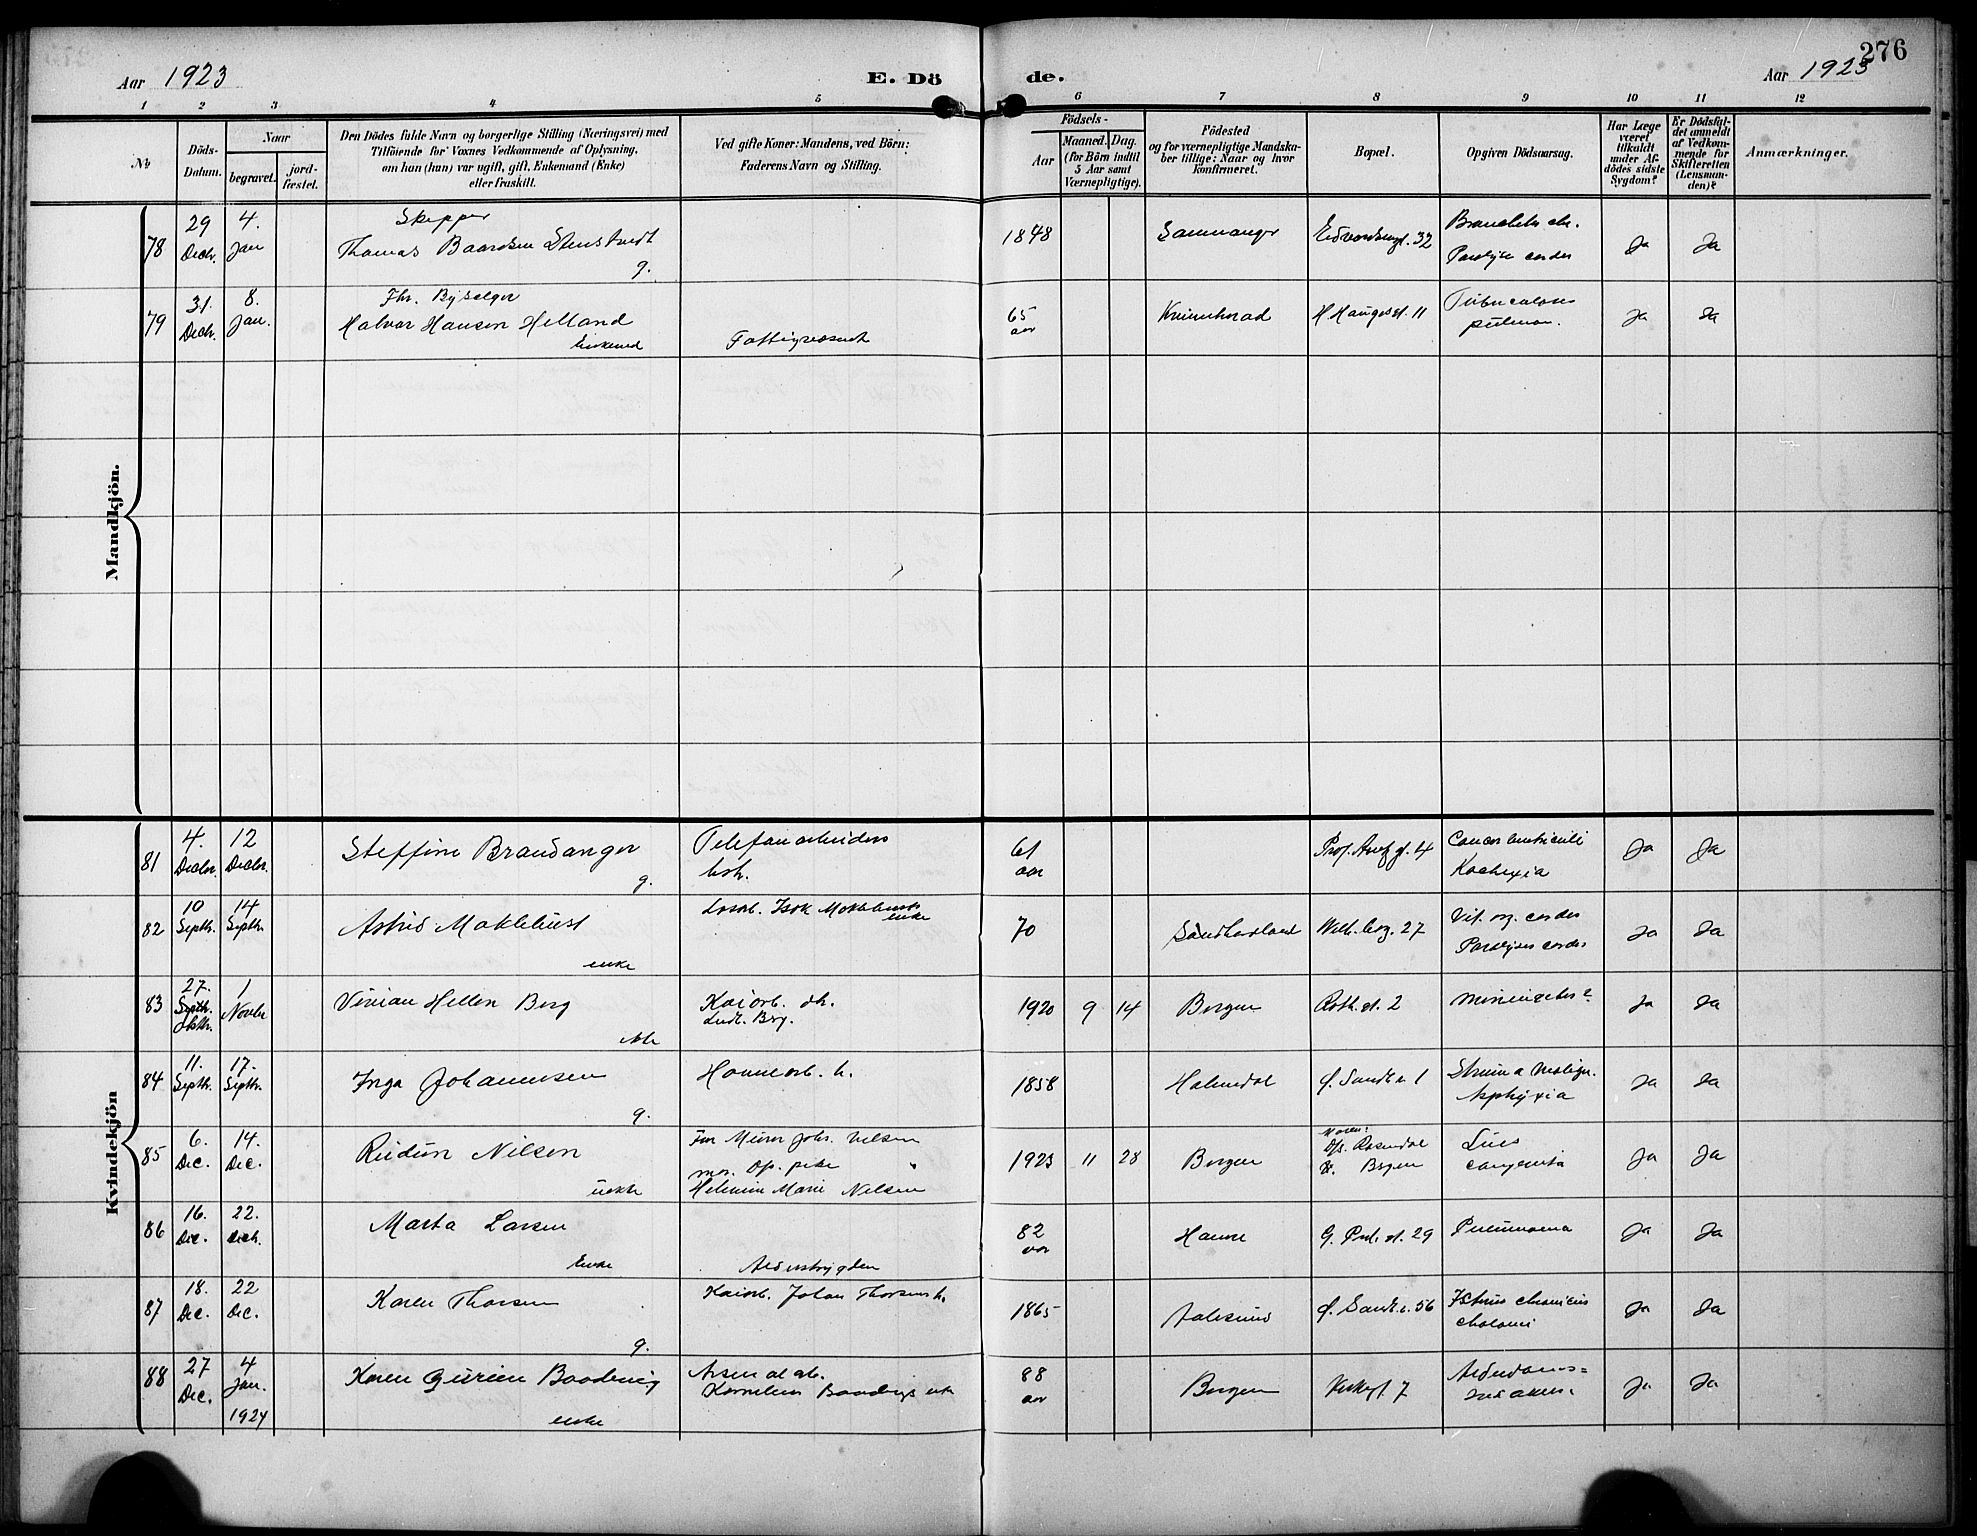 276
Aar 1923
E. Dö
de.
Aar 1923
1 2 3 4 5 6 7 8 9 10 11 12
№
Döds-
Datum.
Naar
begravet.
jord-
fæstet.
Den Dödes fulde Navn og borgerlige Stilling (Næringsvei) med
Tilföiende for Voxnes Vedkommende af Oplysning,
om han (hun) var ugift, gift, Enkemand (Enke)
eller fraskilt.
Ved gifte Koner: Mandens, ved Börn:
Faderens Navn og Stilling.
Födsels-
Aar
Maaned. Dag.
(for Börn indtil
5 Aar samt
Værnepligtige).
Födested
og for værnepligtige Mandska-
ber tillige: Naar og hvor
konfirmeret.
Bopæl.
Opgiven Dödsaarsag.
Har Læge
været
tilkaldt
under Af-
dödes sidste
Sygdom?
Er Dödsfal-
det anmeldt
af Vedkom-
mende for
Skifteretten
(Lensman-
den)?
Anmærkninger.
Mandkjön.
78
29 Decbr.
4. Jan
Skipper
Thomas Baardsen Stenstvedt
g.
1848
Samnanger
Edvardsensgt. 32
Paralyse cordis
Ja
Ja
79
31. Decbr.
8. Jan.
Fhv. Byselger
Halvor Hansen Helland
Enkemd
65 aar
Kvinnherad
H. Haugesgt. 11
Tuberculosis
pulmon.
Ja
Ja
Kvindekjön
81
4. Decbr.
12 Decbr.
Steffine Brandanger
g.
Telefonarbeiders
hst.
61 aar
Prof. Hertz gt. 4
Cancer ventriculi
Kachexia
Ja
Ja
82
10 Septbr.
14 Septbr.
Astrid Moklebust
enke
Losarb. Isak Moklebusts
enke
70
Søndhordland
27
Vit. org. cordis
Paralysis cordis
Ja
Ja
83
27. Septbr. Oktbr.
1 Novbr
Vivian Hellen Berg
ekte
Kaiarb. dt.
Ludv. Berg.
1920
9
14
Bergen
Roth. gt. 2
Meningitis?
Ja
Ja
84
11. Septbr.
17. Septbr.
Inga Johannesen
g.
Havnearb. h.
1858
1858
Holmedal
C. Sundts g. 1
Struma malign.
Asphyxia
Ja
Ja
85
6. Dec.
14. Dec.
Rudun Nilsen
uekte
Far Murer Johs. Nilsen
mor. Op. pike "
Helmine Marie Nilsen
1923
11
28
Bergen
Moren:
Rosendal
Bergen
Lues
congenita
Ja
Ja
86
16. Dec.
22. Decb.
Marta Larsen
Enke
Alderstrygden
82 aar
Havne
29
Pneumonia
Ja
Ja
87
18. Dec.
22 Dec.
Karen Thorsen
g.
Kaiarb. Johan Thorsens h.
1865
Aalesund
C. Sundts g. 56
Icterus chronicus
Ja
Ja
88
27 Dec.
4 Jan. 1924
Karen Gurine Baadsvig
enke
Kornelius Baadsvigs enk
88 aar
Bergen
Kirkegt 7
Alderdoms=
Ja
Ja